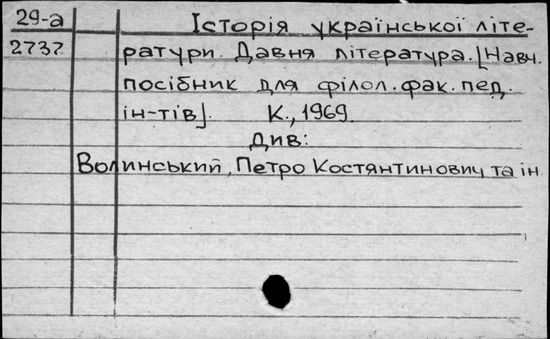 29-а Історія української літе-
2737 ратури. Давня література. [Навч.
посібник для філол. фак. пед.
ін-тів]. К., 1969.
Див:
Волинський, Петро Костянтинович та ін.